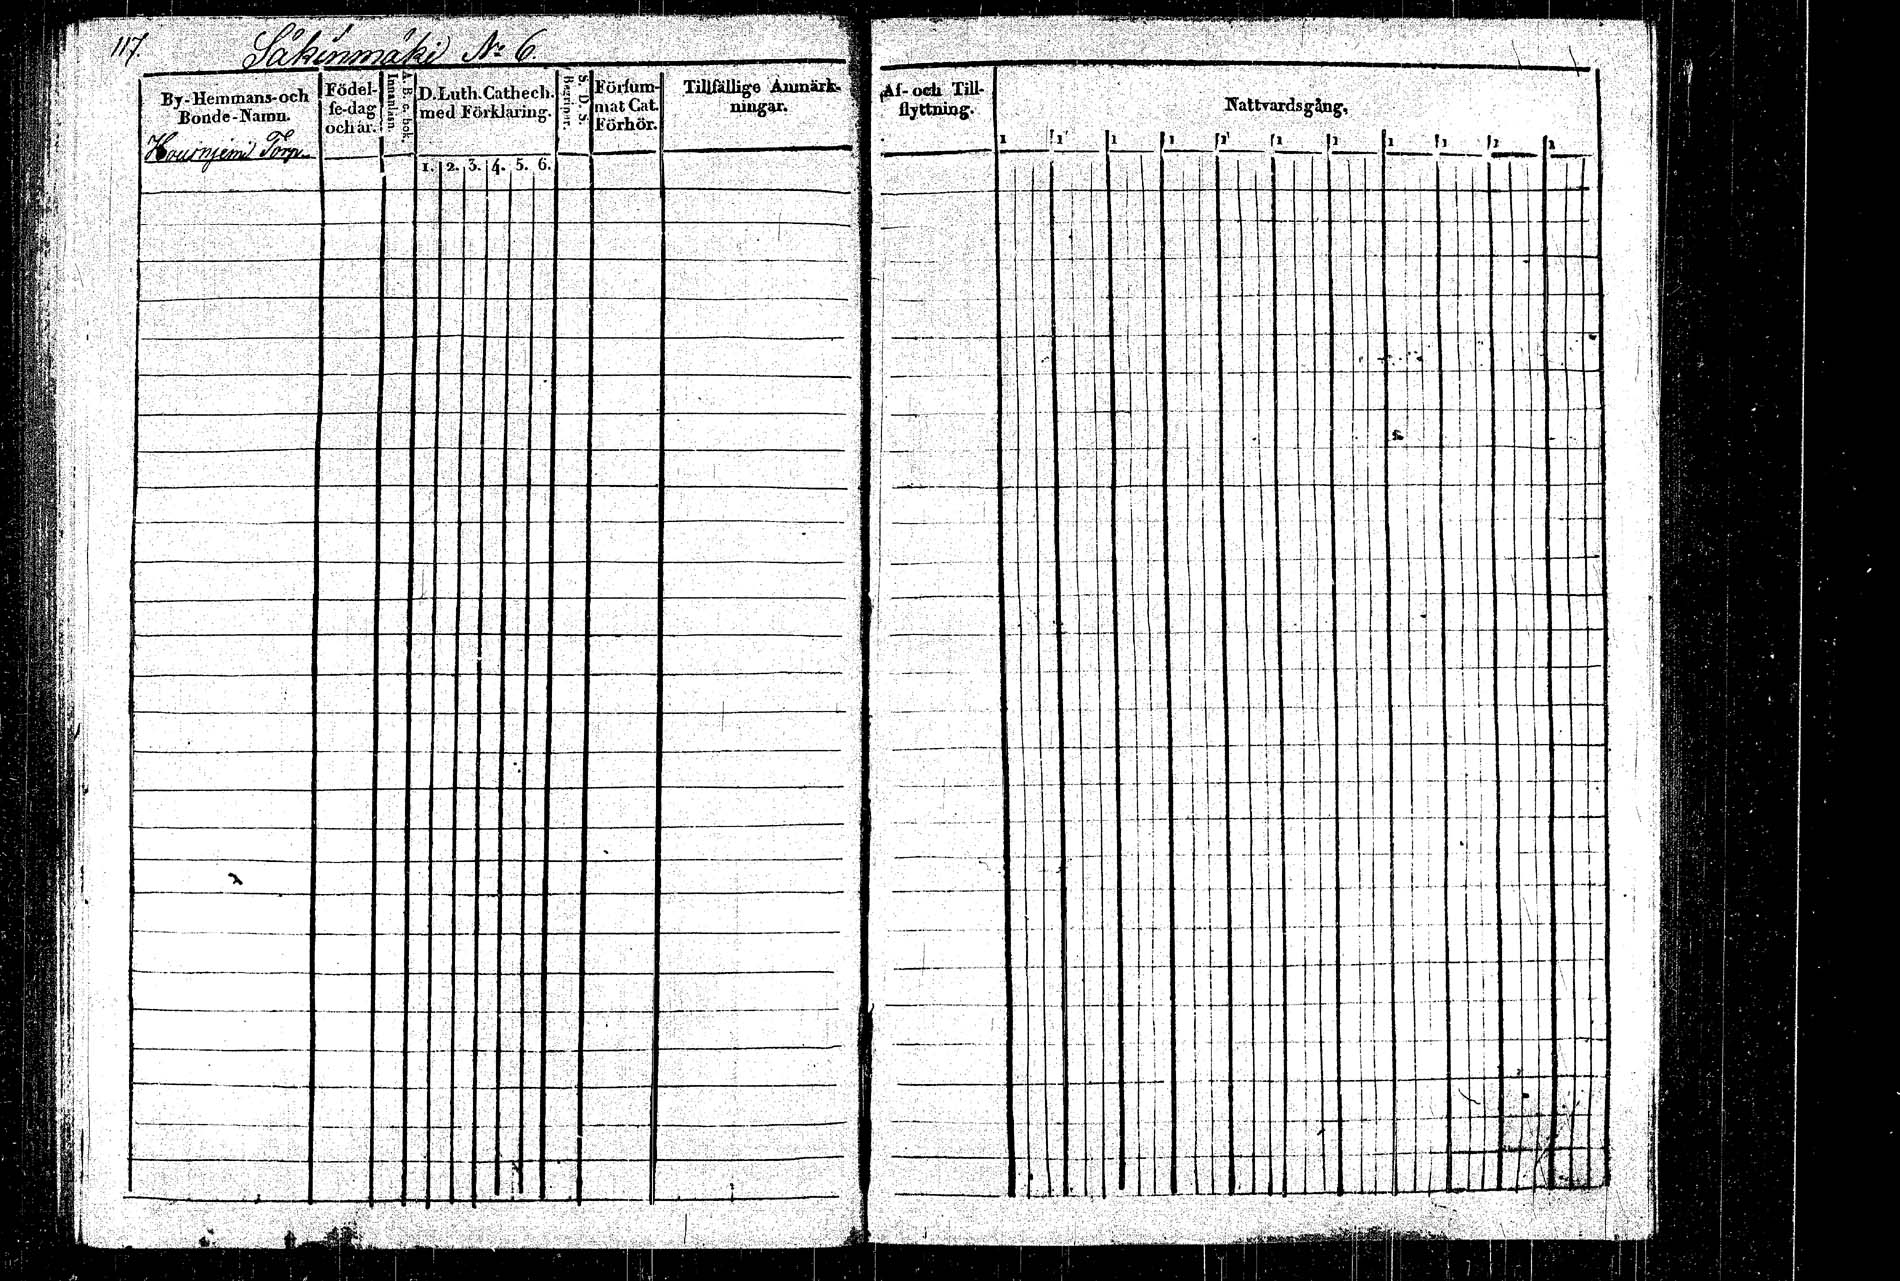 117.
Säkinmäki No 6.
By-Hemmans-och
Bonde-Namn.
Födel-
se-dag
och år.
A. B. c. bok.
Innanläsn.
D. Luth. Cathech.
med Förklaring.
1. 2. 3. 4. 5. 6.
S. D. S.
Begriper.
Försum-
mat Cat.
Förhör.
Tillfällige Anmärk-
ningar.
Torp.
Af- och Till-
flyttning.
Nattvardsgång.
1 1 1 1 1 1 1 1 1 1 1